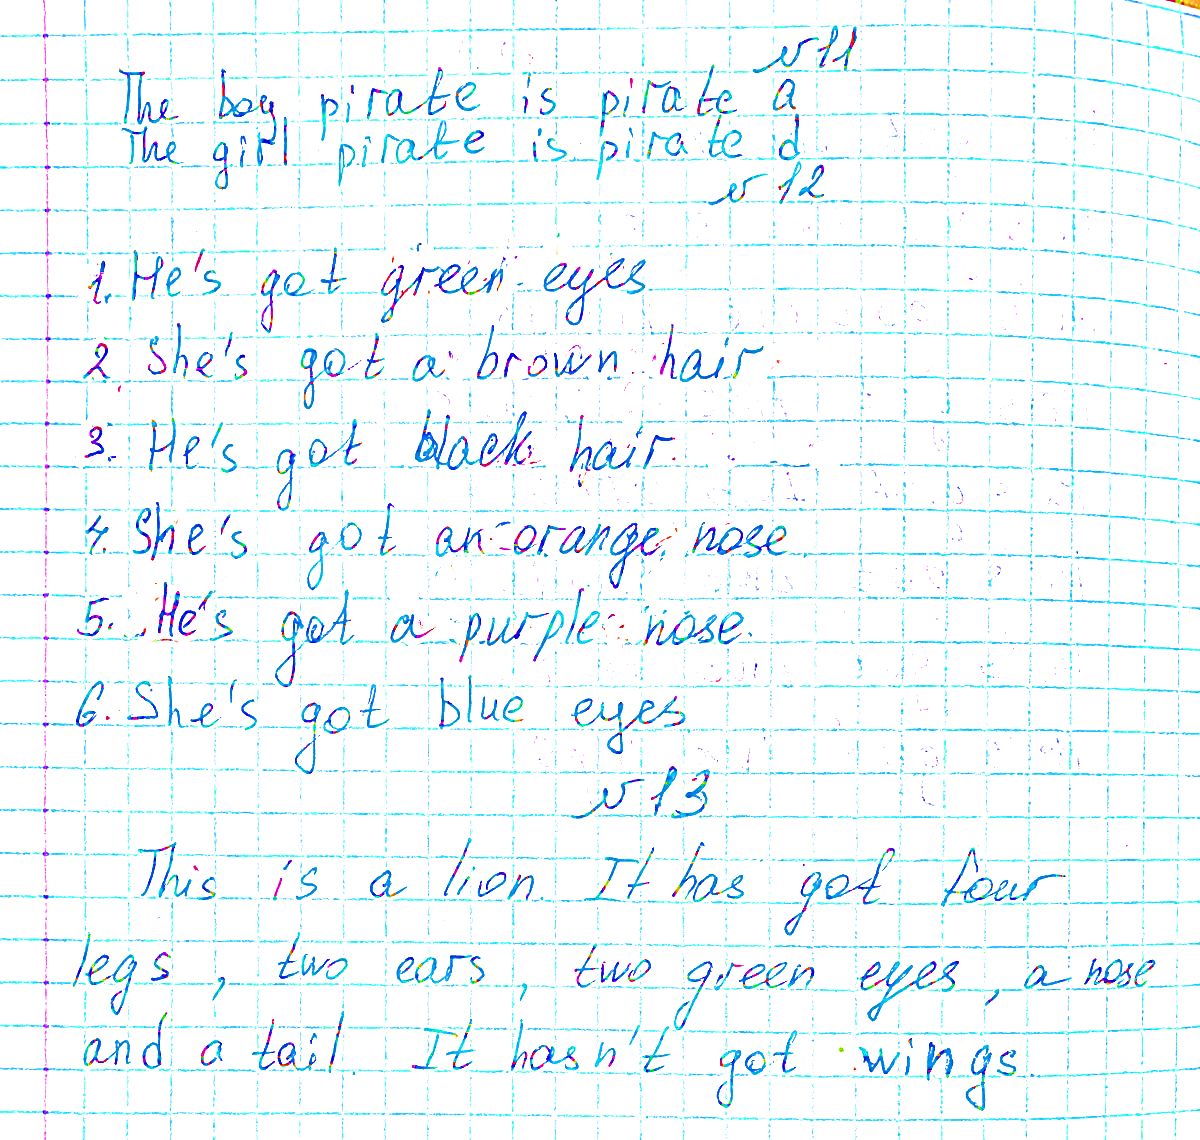 №11
The boy pirate is pirate a
The girl pirate is pirate d
№12
1. He's got green eyes
2. She's got a brown hair
3. He's got black hair.
4. She's got an orange nose.
5. He's got a purple nose.
6. She's got blue eyes.
№13
This is a lion. It has got four
legs, two ears, two green eyes, a nose
and a tail. It hasn't got wings.